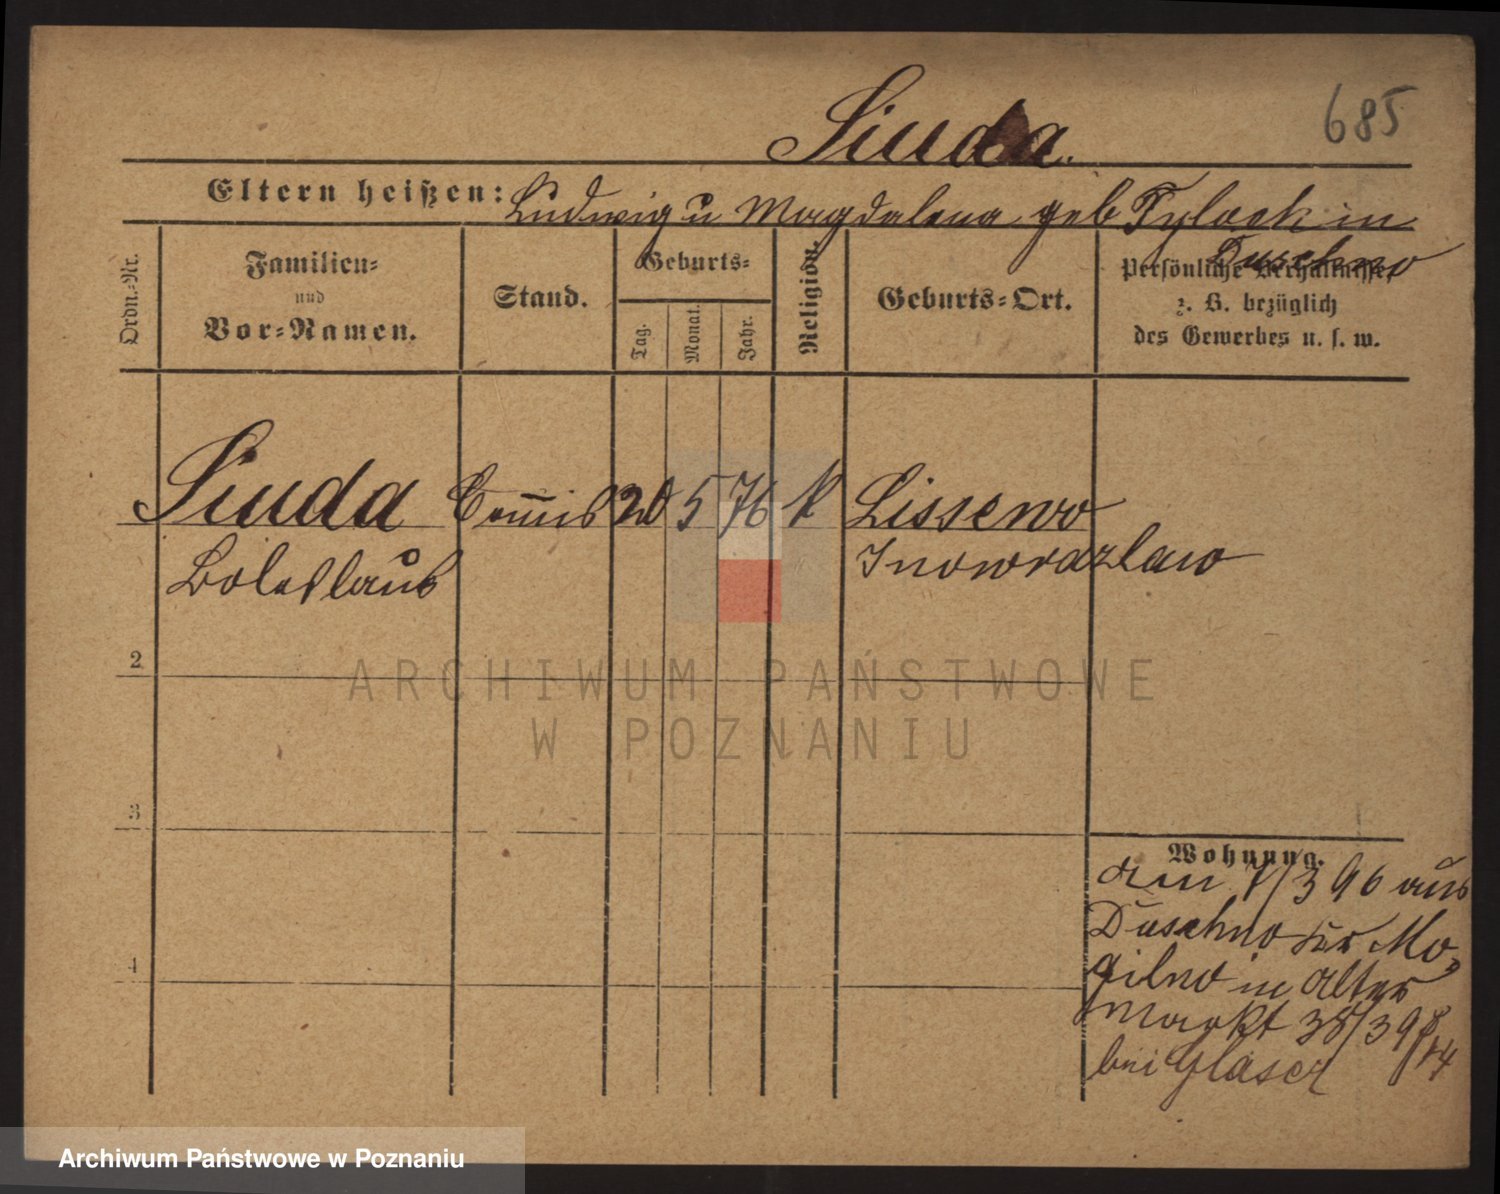 685
Siuda.
Eltern heißen: Ludwig u Magdalena geb Tylock in
Duschno
Ordn.-Nr.
Familien-
und
Vor-Namen.
Stand.
Geburts-
Tag.
Monat.
Jahr.
Religion.
Geburts-Ort.
Persönliche Verhältnisse,
z. B. bezüglich
des Gewerbes u. s. w.
Siuda Com̅is 20 5 76 k Lissewo
Boleslaus Inowrazlaw
2
3
Wohnung.
am 7/3 96 aus
Duschno Kr Mo-
4
gilno in Alter
Markt 38/39
bei Glaser
ARCHIWUM PAŃSTWOWE
W POZNANIU
Archiwum Państwowe w Poznaniu